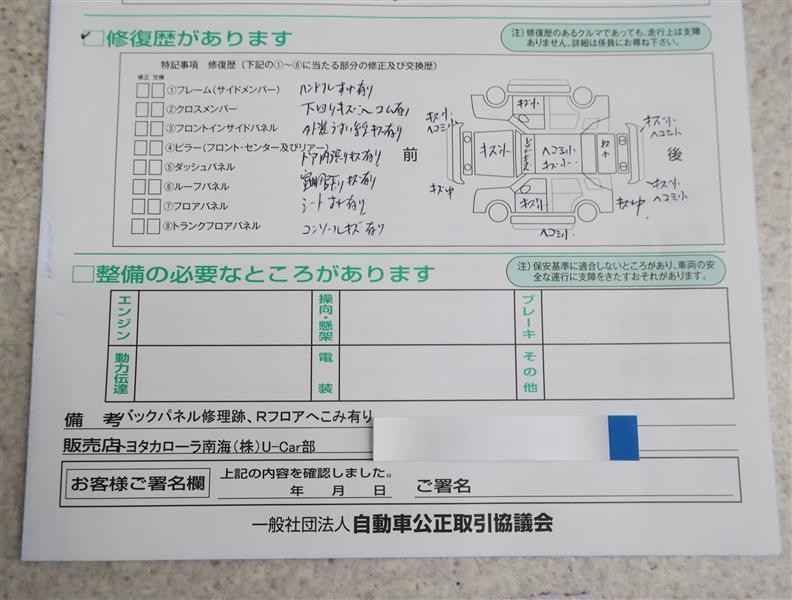 修復歴があります
注）修復歴のあるクルマであっても、走行上は支障ありません。詳細は係員にお尋ね下さい。
特記事項 修復歴（下記の①～⑧に当たる部分の修正及び交換歴）
修正 交換
①フレーム(サイドメンバー) ハンドルすれ有り
②クロスメンバー 下回りキズ、ヘコム有り
③フロントインサイドパネル 外装うすい線キズ有り
④ピラー(フロント・センター及びリアー) ドア内張りキズ有り
⑤ダッシュパネル キズ有り
⑥ルーフパネル シートすれ有り
⑦フロアパネル コンソールキズ有り
⑧トランクフロアパネル
前
後
キズ小
ヘコミ小
キズ中
キズ小
キズ小
キズ小
ヘコミ小
キズ小
キズ小
ヘコミ小
キズ小
ヘコミ小
キズ中
ヘコミ小
整備の必要なところがあります
注）保安基準に適合しないところがあり、車両の安全な運行に支障をきたすおそれがあります。
エンジン
操向・懸架
ブレーキ
動力伝達
電装
その他
備考 バックパネル修理跡、Rフロアへこみ有り
販売店 トヨタカローラ南海(株)U-Car部
お客様ご署名欄
上記の内容を確認しました。
年 月 日
ご署名
一般社団法人 自動車公正取引協議会